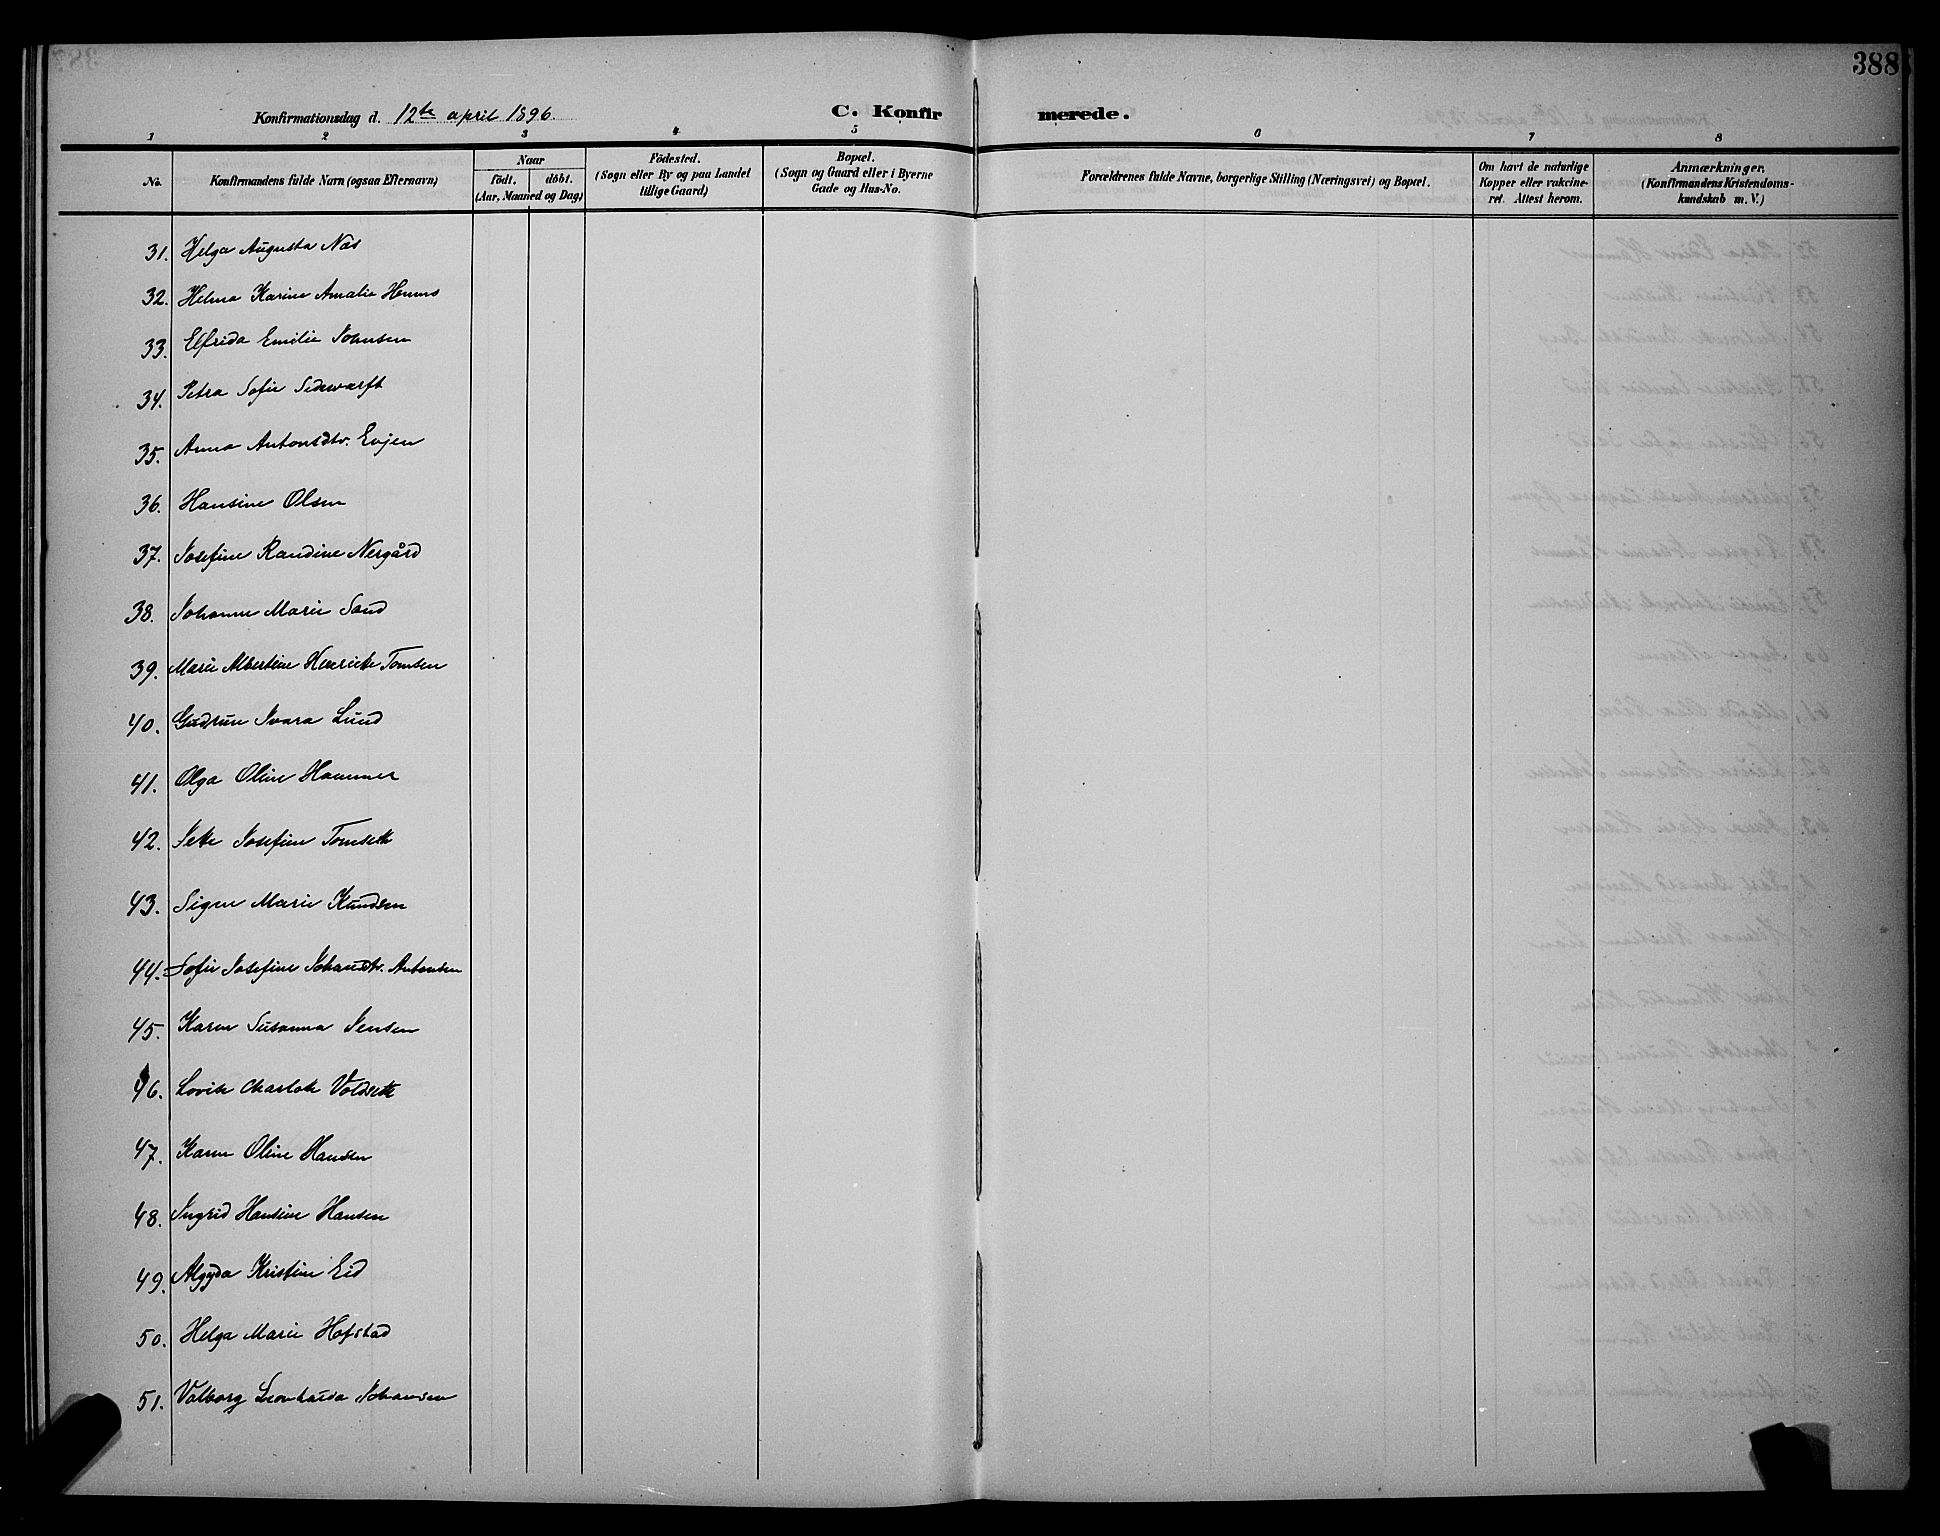 388
Konfirmationsdag d. 12te april 1896.
C. Konfirmerede.
1 2 3 4 5 6 7 8
No.
Konfirmandens fulde Navn (ogsaa Efternavn)
Naar
födt. döbt.
(Aar, Maaned og Dag)
Födested.
(Sogn eller By og paa Landet
tillige Gaard)
Bopæl.
(Sogn og Gaard eller i Byerne
Gade og Hus-No.
Forældrenes fulde Navne, borgerlige Stilling (Næringsvei) og Bopæl.
Om havt de naturlige
Kopper eller vakcine-
ret. Attest herom.
Anmærkninger.
(Konfirmandens Kristendoms-
kundskab m. V.)
31. Helga Augusta Næs
32. Helma Karine Amalie Hemms
33. Elfrida Emilie Johnsen
34. Petra Sofie
35. Anna Antonsdtr. Evjen
36. Hansine Olsen
37. Josefine Randine Nergård
38. Johanne Marie Sand
39. Marie Albertine Henriette Tomsen
40. Gudrun Svara Lund
41. Olga Oline Hammer
42. Josefine Tomseth
43. Signe Marie Knudsen
44. Sofie Josefine Johansdtr. Antonsen
45. Karen Susanna Jensen
46. Lovise Charlotte Voldseth
47. Karen Oline Hansen
48. Ingrid Hansine Hansen
49. Algyda Kristine Eid
50. Helga Marie Hofstad
51. Valborg Leonharda Johansen